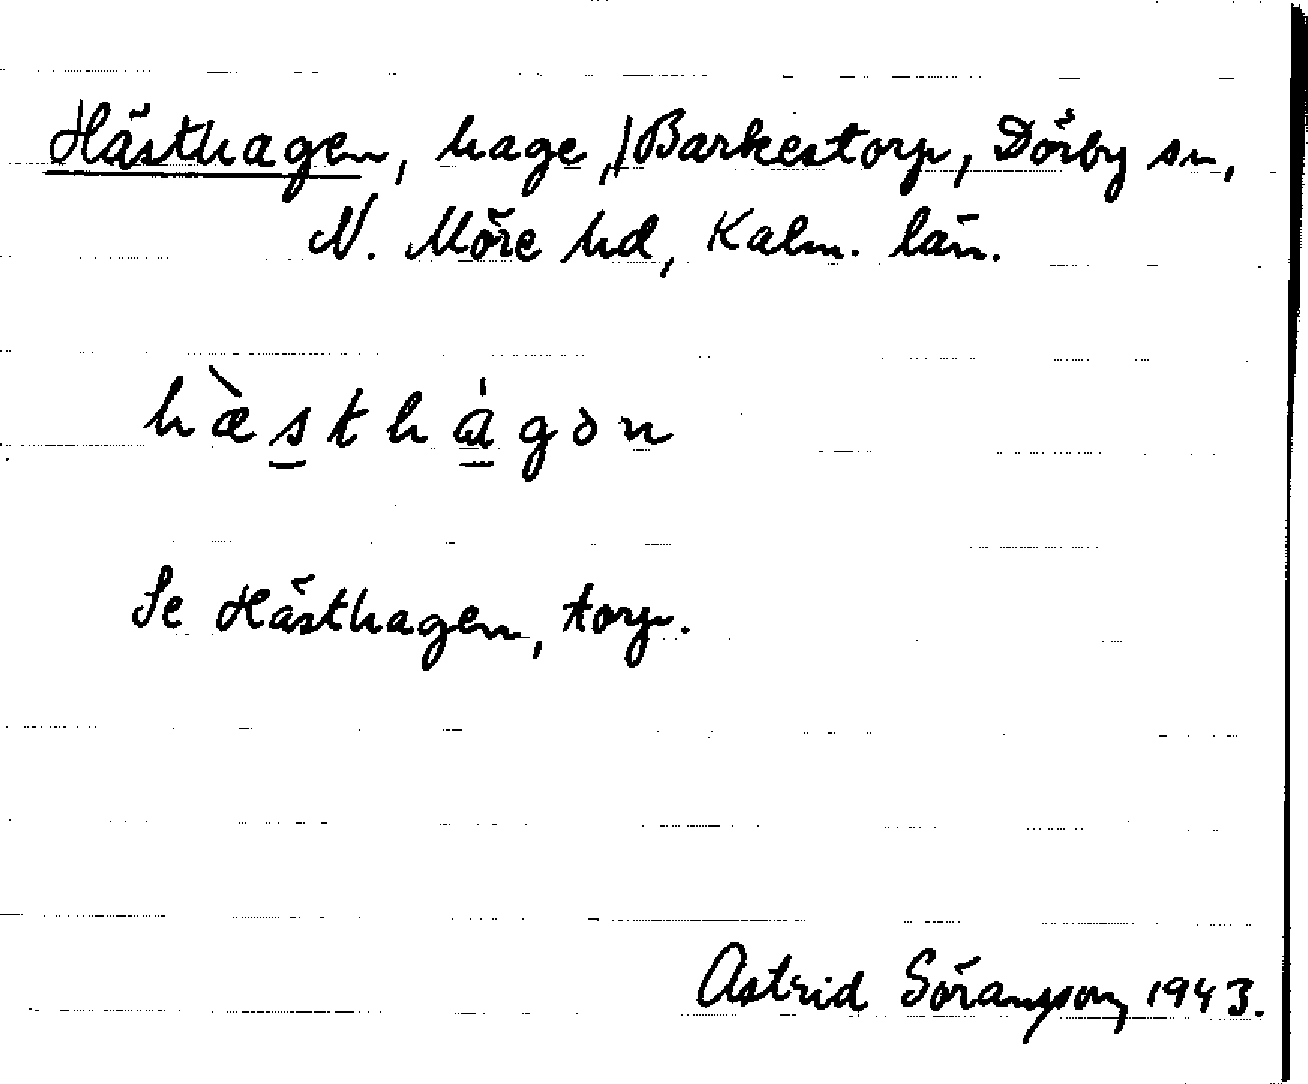 Hästhagen, hage, Barkestorp, Dörby sn,
N. Möre hd, Kalm. län.
hæ̀sthágən
Se Hästhagen, torp.
Astrid Göransson, 1943.